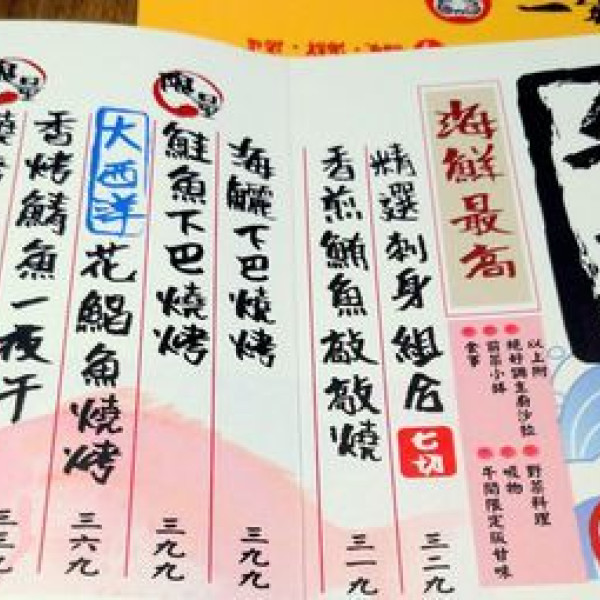 海鮮最高
以上附
絕好調主廚沙拉
前菜小缽
食事
野菜料理
吸物
午間限定版甘味
精選刺身組合 七切 三二九
香煎鮪魚敲敲燒 三一九
海鱺下巴燒烤 三九九
鮭魚下巴燒烤 三九九
大西洋花鯧魚燒烤 三六九
香烤鯖魚一夜干 三三九